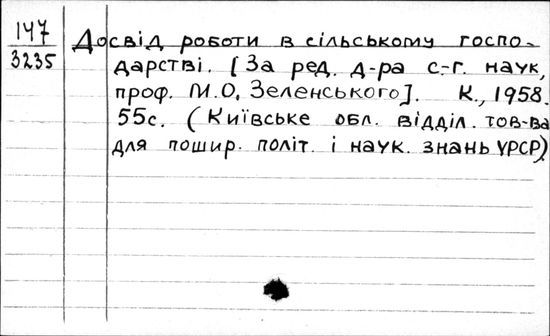 147
3235
Досвід роботи в сільському госпо-
дарстві. [За ред. д-ра с.-г. наук,
проф. М.О. Зеленського]. К., 1958.
55с. (Київське обл. відділ. тов-ва
для пошир. політ. і наук. знань УРСР).